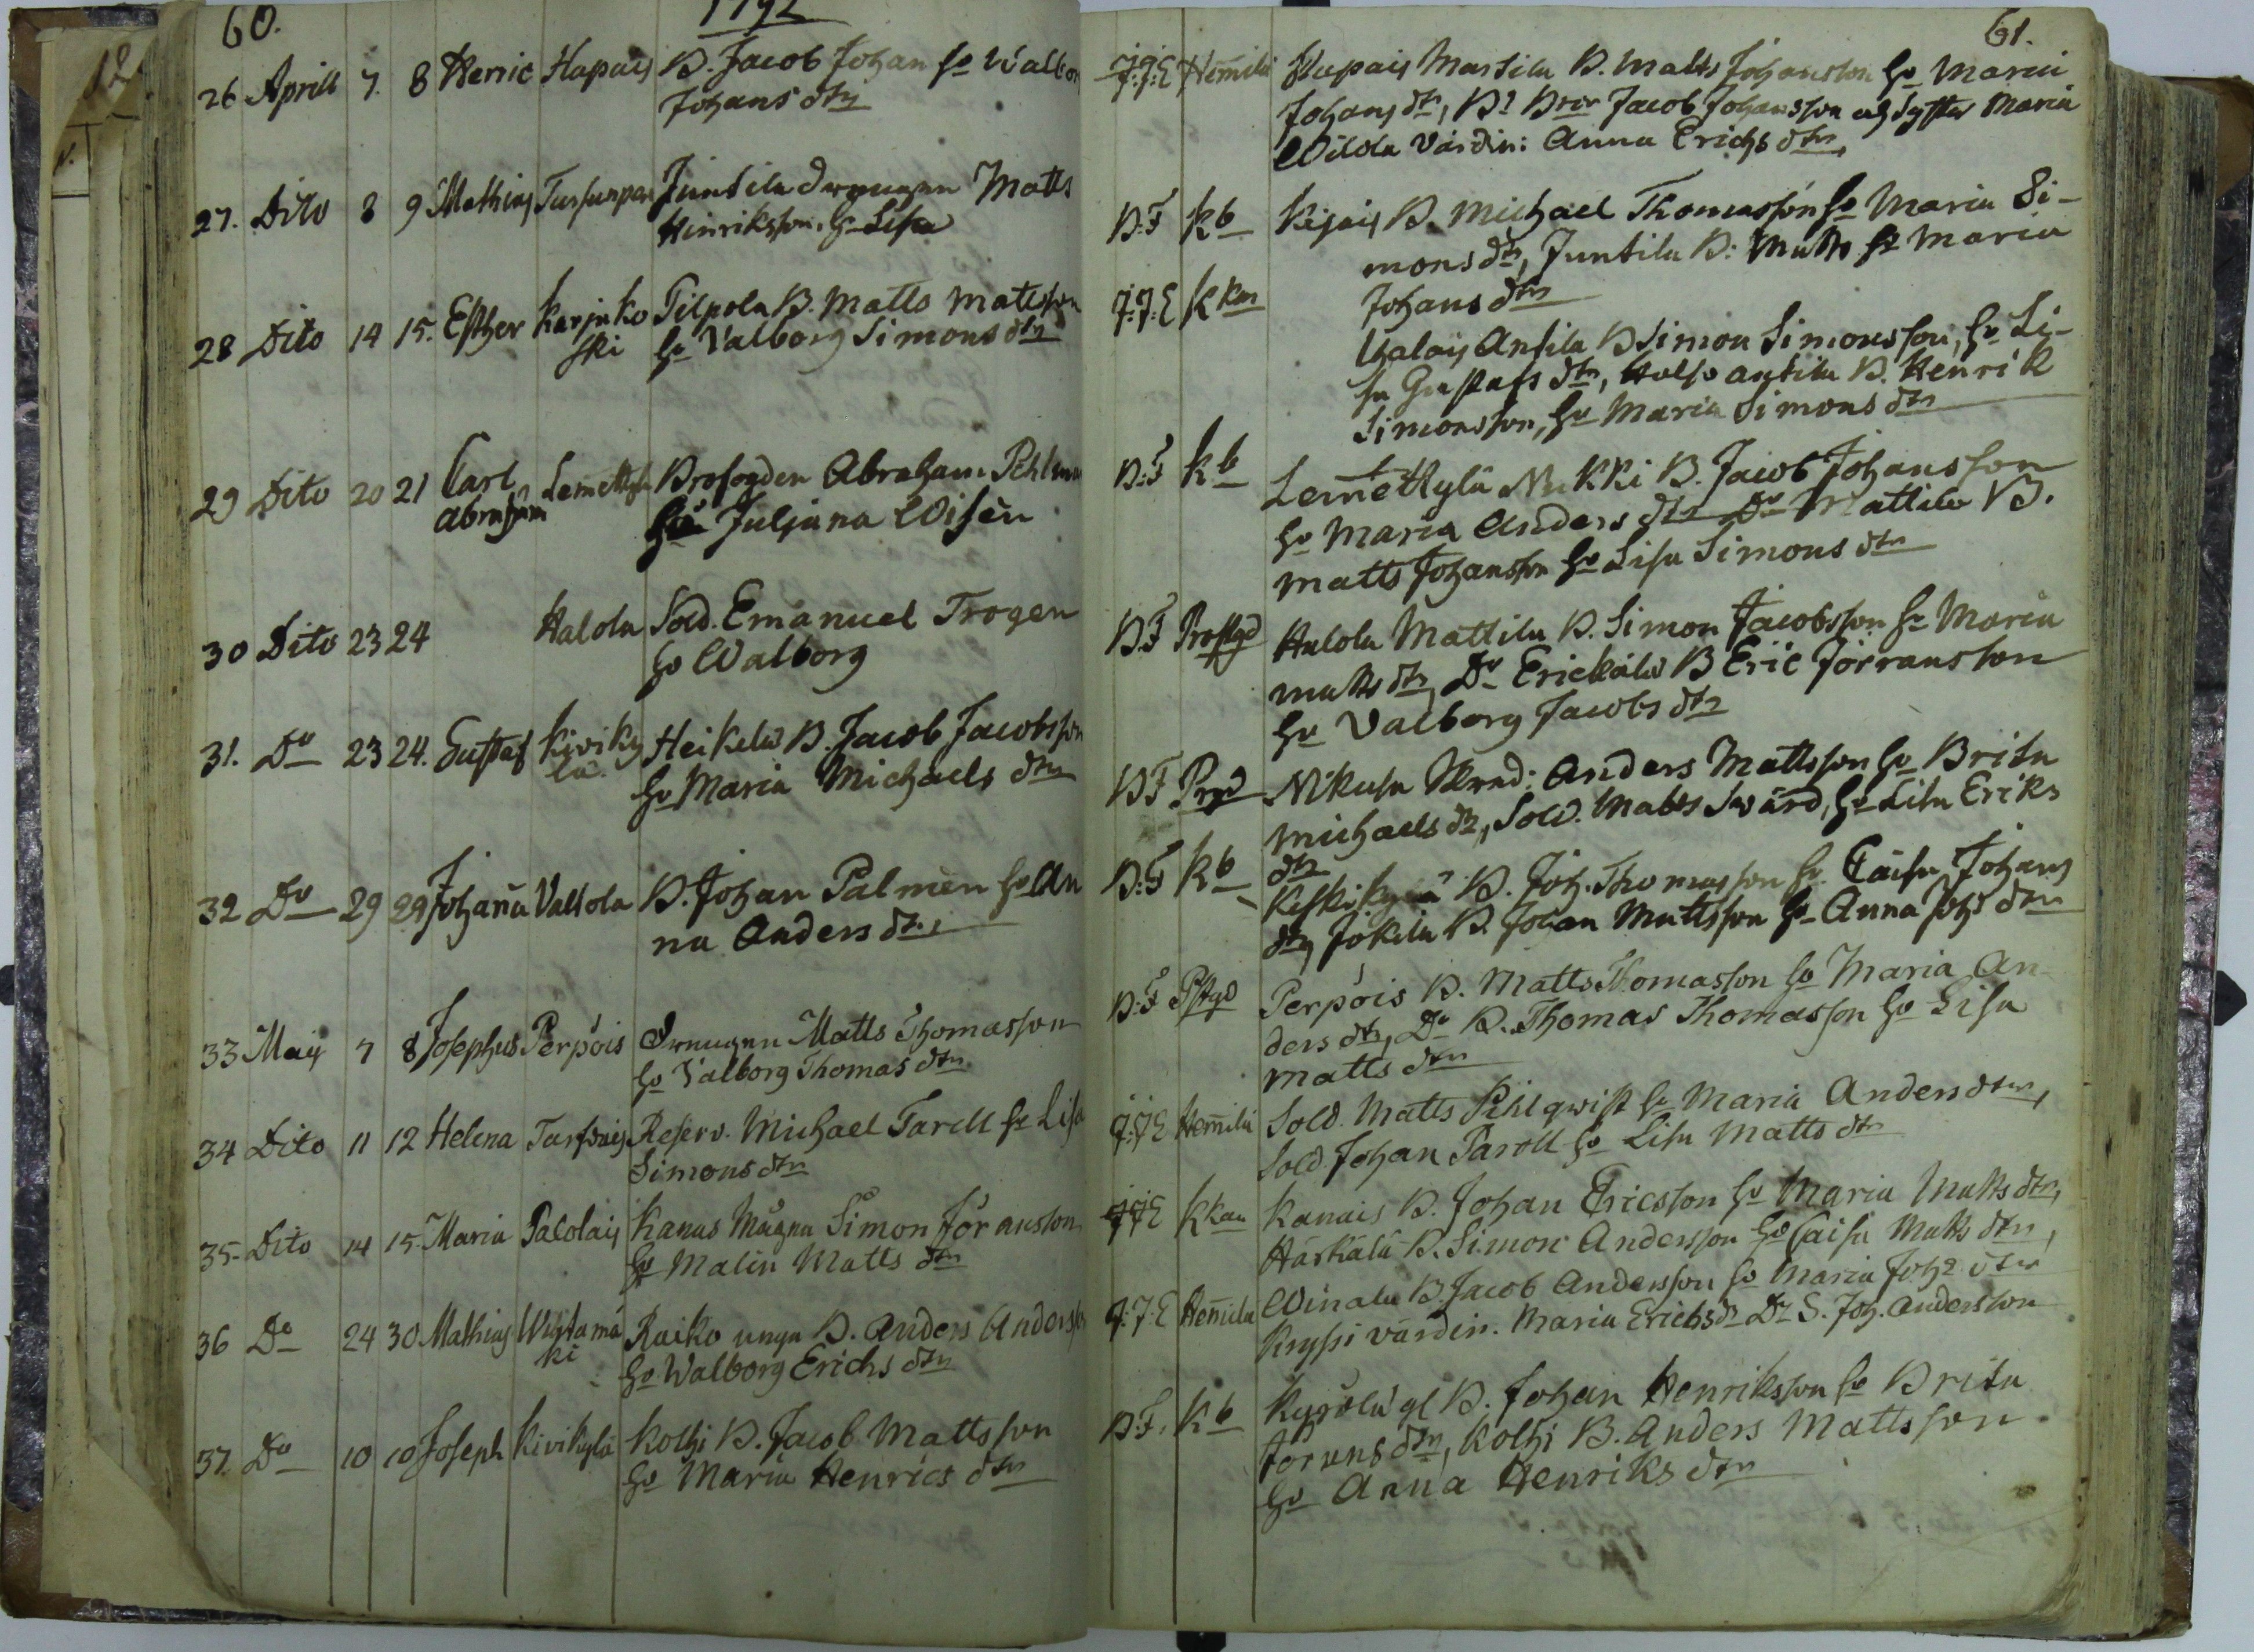 60.
1792
26 Aprill 7. 8 Henric Hapais B. Jacob Johan ho Walbor
Johans dtr
27. Dito 8 9 Mathias Juntila Matts
Henriksson. ho Lisa
28 Dito 14 15. Esther Karjuko Pilpola B. Matts Mattsson
ski ho Valborg Simons dtr
29 Dito 20 21 Carl Lemettylä Brofogden Abraham Pehlman
Abraham Juljana Wisèn
30 Dito 23 24 Halola Sold. Emanuel Trogen
ho Walborg
31. Do 23 24. Gustaf Kiviky Heikelä B. Jacob Jacobsson
lä. ho Maria Michaels dtr
32 Do 29 29 Johana Vallola B. Johan Palmèn ho An
na Anders dtr,
33 May 7 8 Josephus Perpöis Matts Thomasson
ho Valborg Thomas dtr
34 Dito 11 12 Helena Reserv. Michael Tarell ho Lisa
Simons dtr
35. Dito 14 15. Maria Palolais Kanas Mågen Simon Jöransson
ho Malin Matts dtr
36 Do 24 30 Mathias Wuotamä Raiko unga B. Anders Anderss
ki ho Walborg Erichs dtr
37. Do 10 10 Joseph Kivikylä Kolhi B. Jacob Mattsson
ho Maria Henrics dtr
61.
J:J:E Hemilä Mattila B. Matts Johansson ho Maria
Johans dtr, Jacob Johansson och Syster Maria
Wilola värdin: Anna Erichs dtr,
B:F Kb Kejais B. Michael Thomasson ho Maria Si-
mons dtr, Juntila B: Matts ho Maria
J:J:E Kkm Johans dtr
Uhalais Antila B Simon Simonsson, ho Li-
sa Gustafs dtr, Antila B. Henrik
Simonsson, ho Maria Simons dtr
B:F Kb Lemettylä Nikki B. Jacob Johansson
ho Maria Anders dtr Do Mattila B.
Matts Johansson ho Lisa Simons dtr
B:F Prostgd Halola Mattila B. Simon Jacobsson ho Maria
Matts dtr, Do Erickälä B Eric Jörransson
ho Valborg Jacobs dtr
B F Prgd Nikula Anders Mattsson ho Brita
Michaels dr, Sold. Matts Swärd, ho Lisa Eriks
dtr
B:F Kb Keskikylä B. Joh. Thomasson ho Caisa Johans
dtr, Jokila B. Johan Mattsson ho Anna Johs dtr
B:F Pstgd Perpöis B. Matts Thomasson ho Maria An-
ders dtr, Do B. Thomas Thomasson ho Lisa
Matts dtr
J:J:E Hemilä Sold. Matts Pihlqwist ho Maria Anders dtr,
Sold Johan Paroll ho Lisa Matts dtr
J:J:E Kkan Kanais B. Johan Ericsson ho Maria Matts dtr,
Härkälä B. Simon Andersson ho Caisa Matts dtr,
J:J:E Hemila Winala B. Jacob Andersson ho Maria Johs dtr
Kryssi värdin. Maria Erichs dr Do S. Joh. Andersson
B:F. Kb Kyrölä gl B. Johan Henriksson ho Brita
Jörans dtr, Kolhi B. Anders Mattsson
ho Anna Henriks dtr